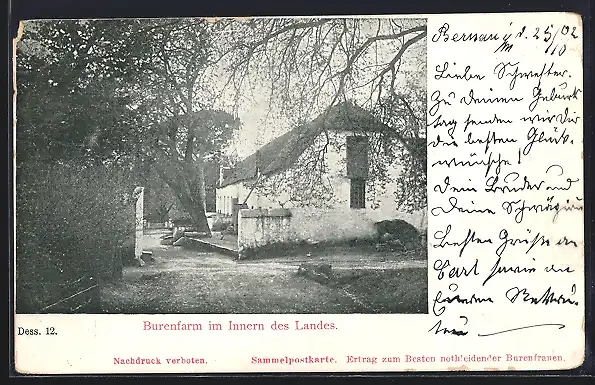 Bernau d. 25/10 02
Liebe Schwester.
Zu Deinem Geburts
tag senden wir Dir
die besten Glück-
wünsche!
Dein Bruder und
Deine Schwägerin
Besten Gruß an
Carl sowie an
Dess. 12.
Burenfarm im Innern des Landes.
Nachdruck verboten. Sammelpostkarte. Ertrag zum Besten nothleidender Burenfrauen.